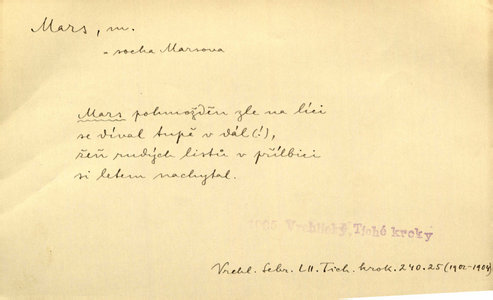 Mars, m.
= socha Marsova
Mars pohmožděn zle na líci
se díval tupě v dál (!),
žeň rudých listů v přílbici
si letem nachytal.
1905 Vrchlický, Tiché kroky
Vrchl. Sebr. LII. Tich. krok. 240.25 (1902-1904)